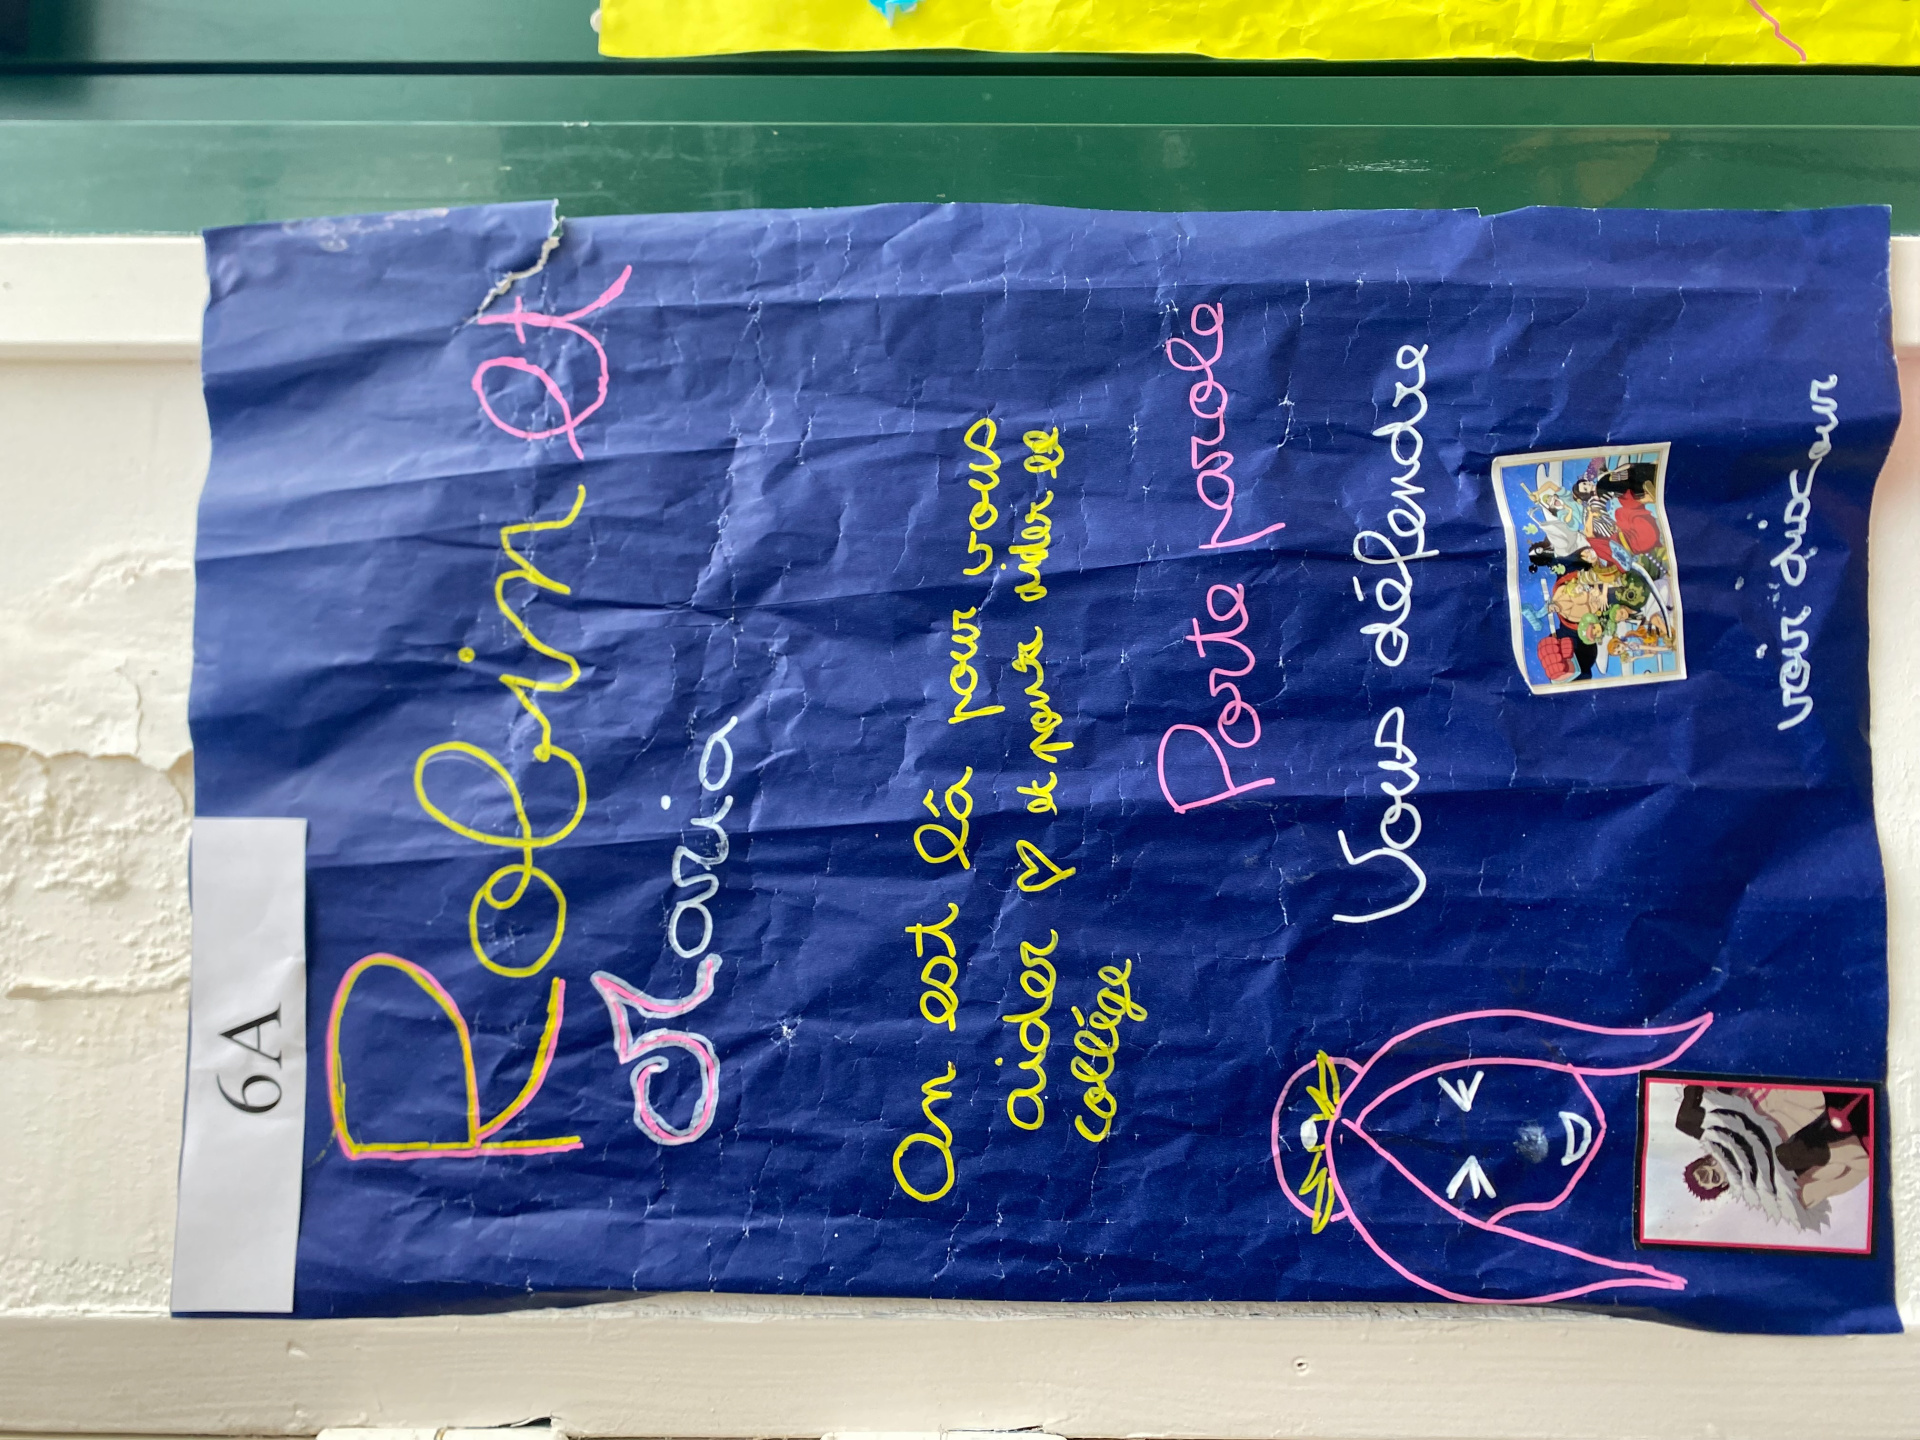 6A
Robin et
Maria
On est là pour vous
aider ♡ et pour aider le
collége
Porte parole
Vous défendre
voir dixcour